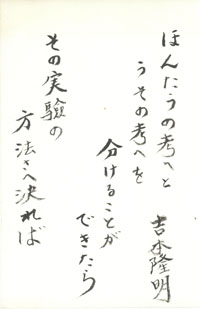 ほんたうの考へと
うその考へを
分けることが
できたら
その実験の
方法さへ決れば
吉本隆明